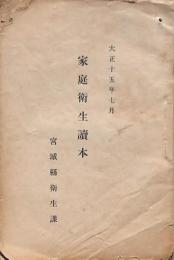 大正十五年七月
家庭衛生讀本
宮城縣衛生課